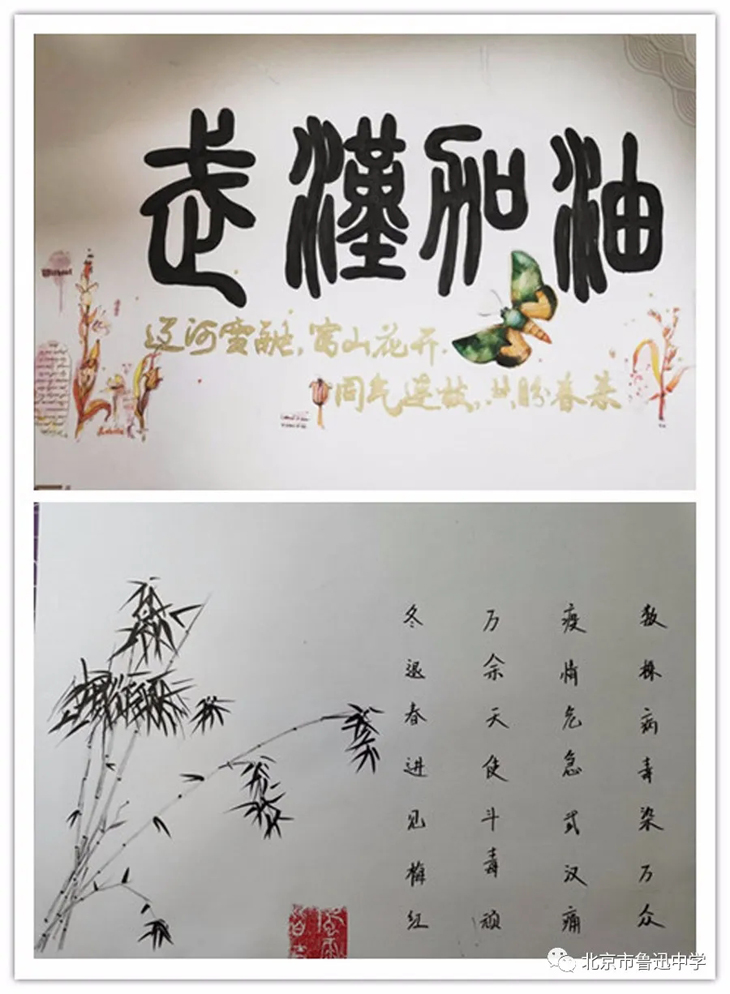 武漢加油
辽河雪融，富山花开．
同气连枝，共盼春来
Without
数株病毒染万众
疫情危急武汉痛
万余天使斗毒顽
冬退春进见梅红
北京市鲁迅中学